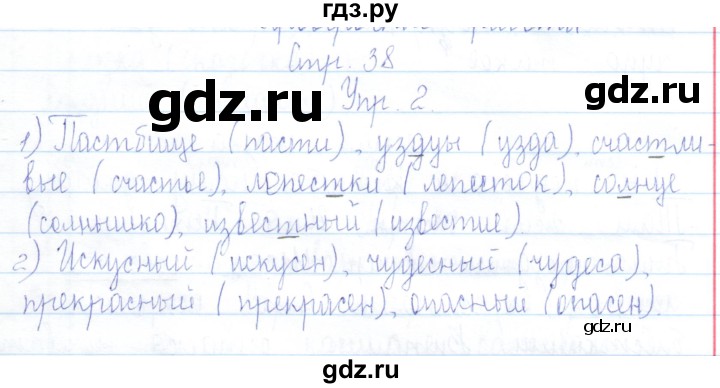 гдз.ру
Стр. 38
gdz.ru
gdz.ru
Упр. 2.
1) Пастбище (пасти), уздцы (узда), счастли-
вые (счастье), лепестки (лепесток), солнце
(солнышко), известный (известие).
2) Искусный (искусен), чудесный (чудеса),
прекрасный (прекрасен), опасный (опасен).
gdz.ru
gdz.ru